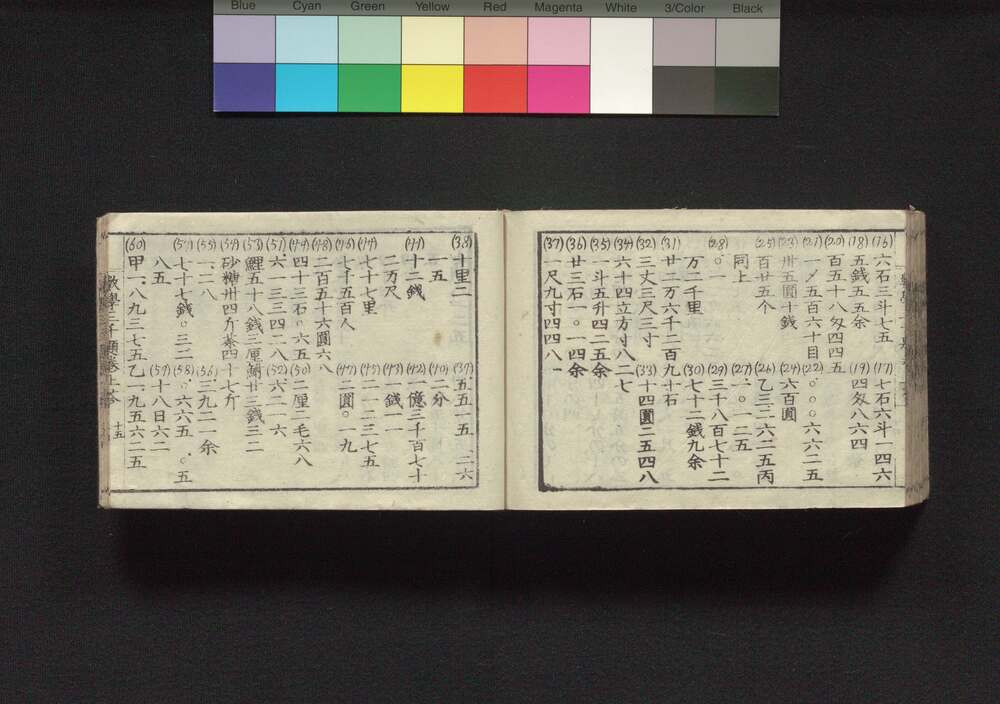 Blue Cyan Green Yellow Red Magenta White 3/Color Black
(16) 六石三斗七五 (17) 七石六斗一四六
(18) 五錢五五余 (19) 四匁八六四
(20) 百五十八匁四四五
(21) 一〆五百六十目 (22) 〇.〇〇六六二五
(23) 卅五圓十錢 (24) 六百圓
(25) 百廿五个 (26) 乙三二六二五丙
同上 (27) 一.〇一二五
(28) 〇.一 (29) 三千八百七十二
万二千里 (30) 七十二錢九余
(31) 廿二万六千二百九十石
(32) 三丈三尺三寸 (33) 十四圓二五四八
(34) 六十四立方寸八二七
(35) 一斗五升四二五余
(36) 廿三石一〇一四余
(37) 一尺九寸四四八一
(38) 十里二 (39) 五五一五.二六
一五 (40) 二分
(41) 十二錢 (42) 一億三千百七十
二万尺 (43) 錢一一
(44) 七十七里 (45) 二一二三七五
(46) 七千五百人 (47) 二圓〇一九
(48) 二百五十六圓六八
(49) 四十三石〇六五 (50) 二厘二毛六八
(51) 六.一三三四二八 (52) 六.二二一六
(53) 鯉五十八錢三厘 廿三錢三二
(54) 砂糖卅四斤茶四十七斤
(55) 一.二八 (56) 三.九二一余
(57) 七十七錢〇三二 (58) 〇.六六五.〇五
八五 (59) 十八日六二
(60) 甲一.八九三七五乙一.九五六二五
數學三千題卷上答 十五